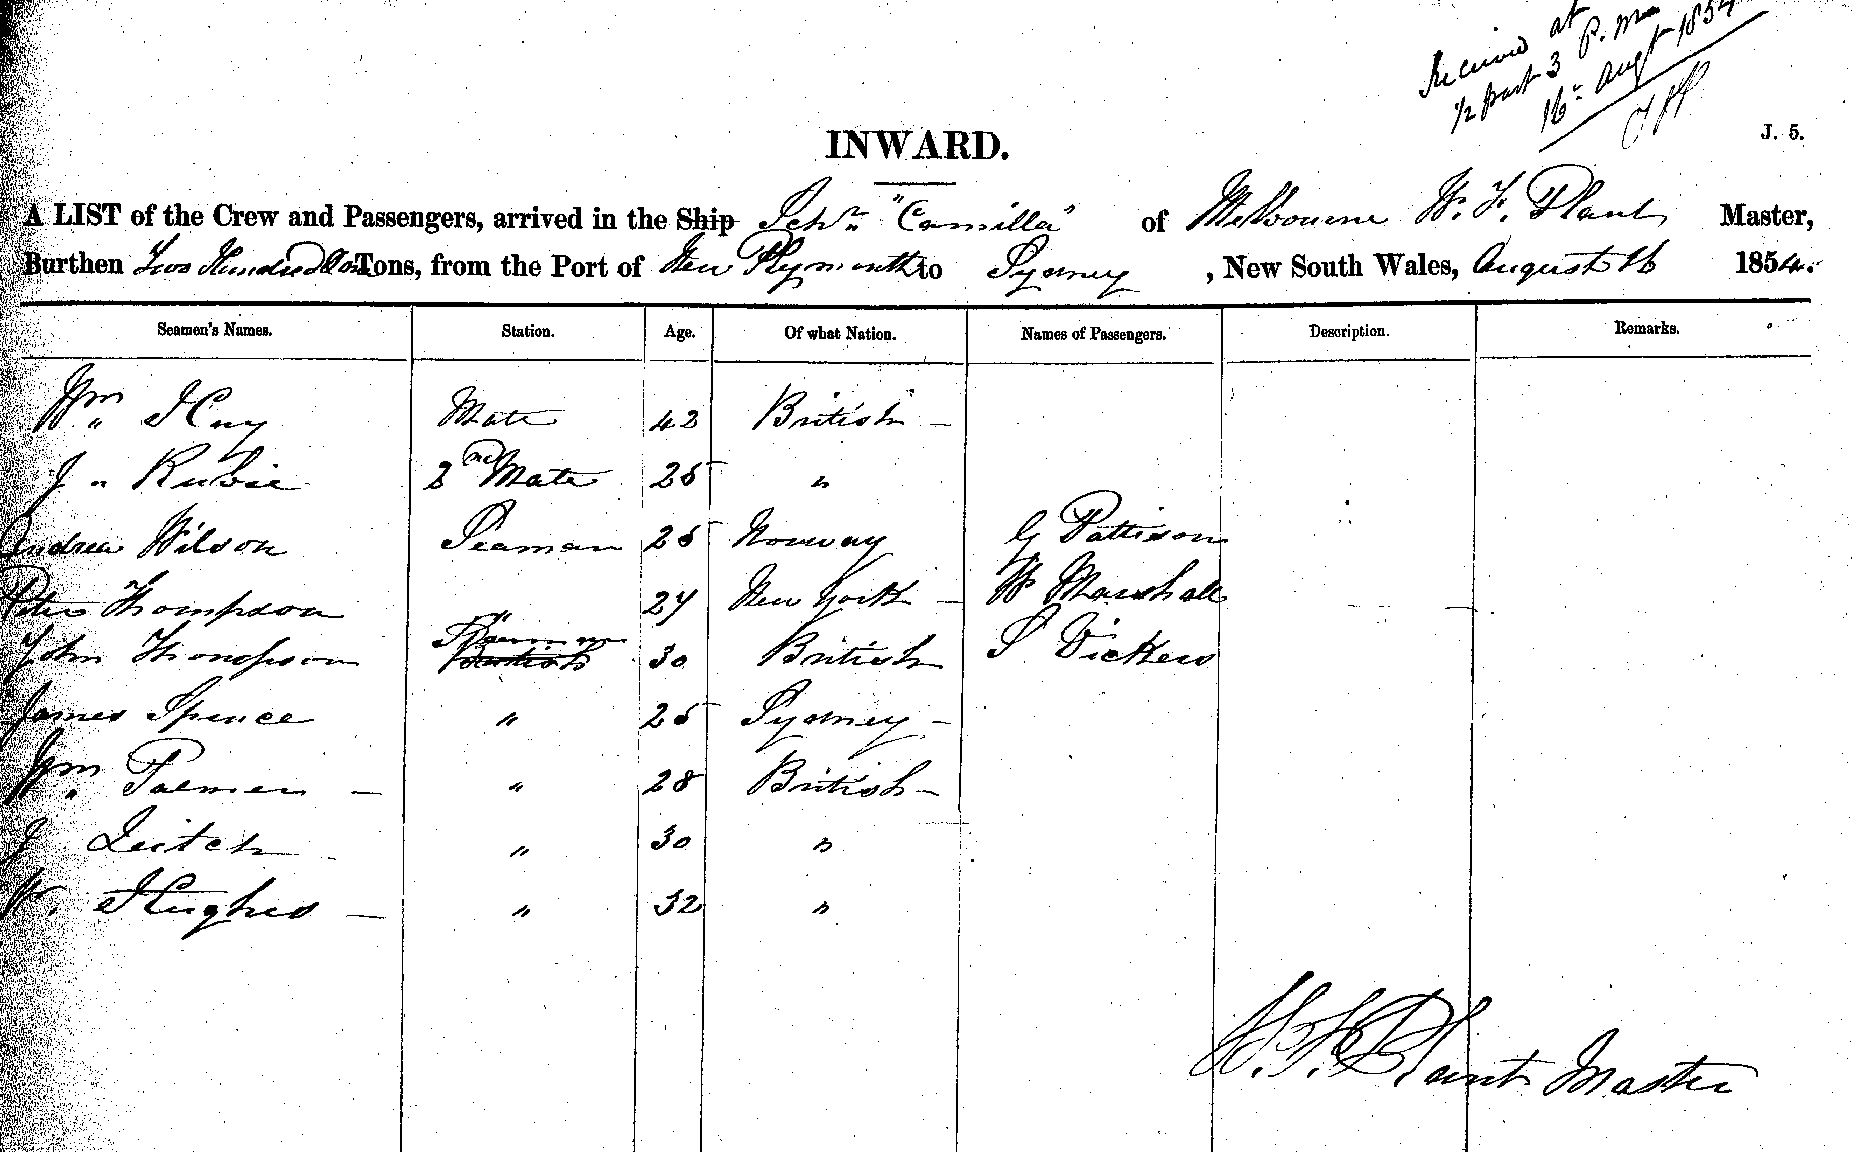 Received at
1/2 past 3 P. M
16 Augt 1854
INWARD.
J. 5.
A LIST of the Crew and Passengers, arrived in the Ship Schr "Camilla" of Melbourne W. F. Plant, Master,
Burthen Two Hundred Tons, from the Port of New Plymouth to Sydney, New South Wales, August 16 1854.
Seamen's Names. Station. Age. Of what Nation. Names of Passengers. Description. Remarks.
Wm Hay Mate 42 British
J " 2nd Mate 25 "
Andrew Wilson Seaman 25 Norway G Pattison
Peter Thompson " 24 New York W Marshall
John Thompson Seaman British 30 British S Vickers
James Spence " 25 Sydney
Wm Palmer " 28 British
J Leitch " 30 "
W. Hughes " 32 "
W. F. Plant Master